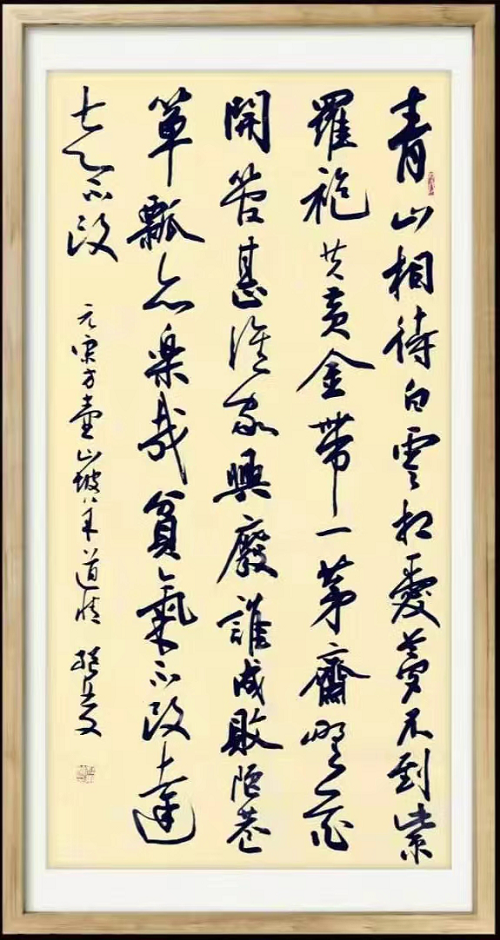 青山相待白雲相愛夢不到紫
羅袍共黄金帶一茅齋野花
開管甚誰家興廢誰成敗陋巷
箪瓢亦楽哉貧氣不改達
志不改
元宋方壶山坡羊道情